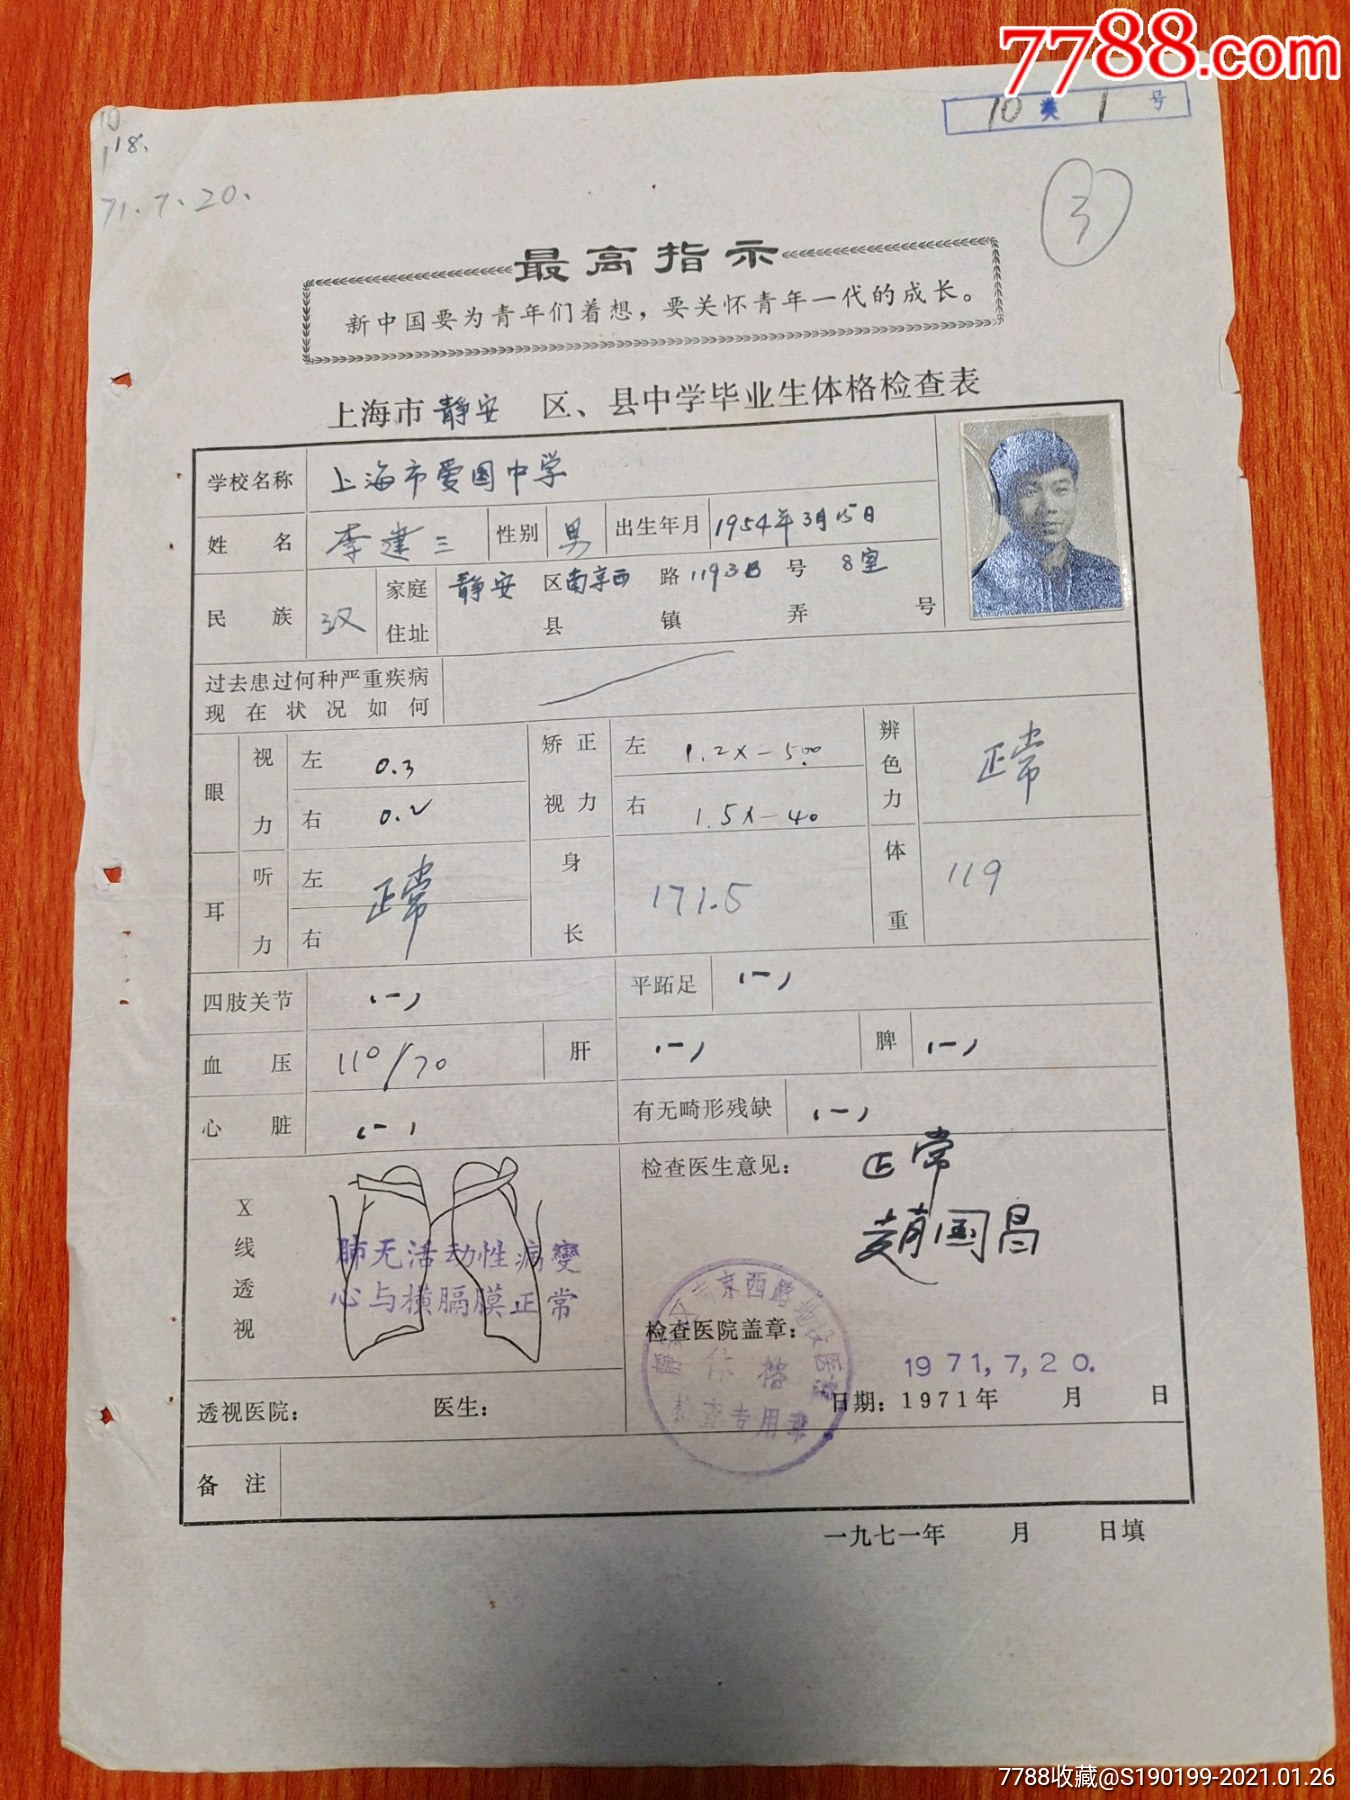 7788.com
10 类 1 号
18.
71.7.20.
3
最高指示
新中国要为青年们着想，要关怀青年一代的成长。
上海市 静安 区、县中学毕业生体格检查表
学校名称 上海市爱国中学
姓名 李建三 性别 男 出生年月 1954年3月15日
民族 汉 家庭住址 静安 区 南京西 路 1193B 号 8室
县 镇 弄 号
过去患过何种严重疾病
现在状况如何
眼 视力 左 0.3 矫正视力 左 1.2x-5.00 辨色力 正常
右 0.2 右 1.5x-40
耳 听力 左 右 正常 身长 171.5 体重 119
四肢关节 (-) 平跖足 (-)
血压 110/70 肝 (-) 脾 (-)
心脏 (-) 有无畸形残缺 (-)
X线透视
肺无活动性病變
心与横膈膜正常
检查医生意见： 正常
赵国昌
检查医院盖章：
京西路地段医院
体格
检查专用章
1971,7,20.
透视医院： 医生： 日期：1971年 月 日
备注
一九七一年 月 日填
7788收藏@S190199-2021.01.26